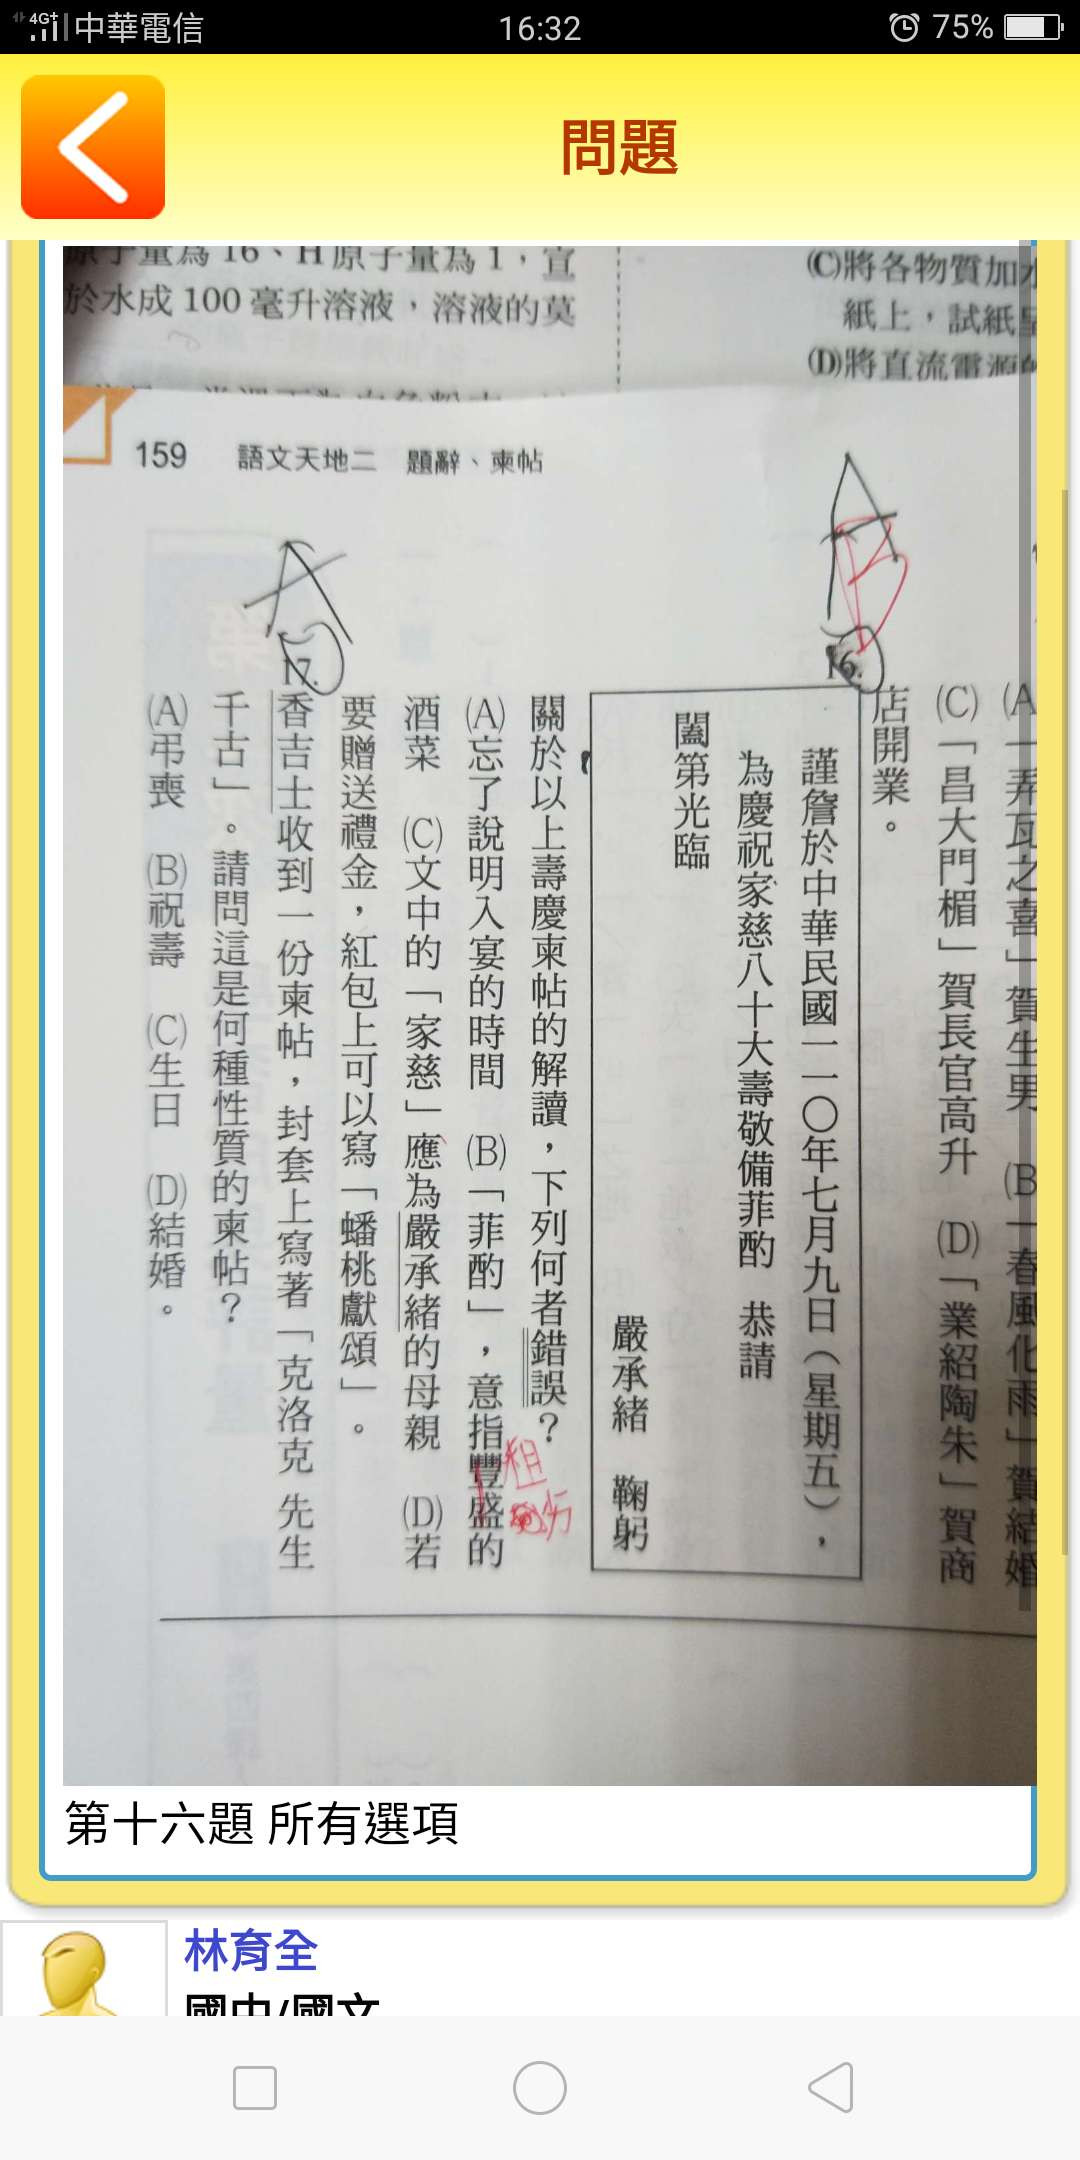 4G+ 中華電信 16:32 75%
問題
原子量為16、H原子量為1，宣
於水成100毫升溶液，溶液的莫
(C)將各物質加水
紙上，試紙呈
(D)將直流電源的
159 語文天地二 題辭、柬帖
(A)「弄瓦之喜」賀生男 (B)「春風化雨」賀結婚
(C)「昌大門楣」賀長官高升 (D)「業紹陶朱」賀商
店開業。
16.
謹詹於中華民國一一〇年七月九日（星期五），
為慶祝家慈八十大壽敬備菲酌 恭請
闔第光臨
嚴承緒 鞠躬
關於以上壽慶柬帖的解讀，下列何者錯誤？
(A)忘了說明入宴的時間 (B)「菲酌」，意指豐盛的
粗劣
酒菜 (C)文中的「家慈」應為嚴承緒的母親 (D)若
要贈送禮金，紅包上可以寫「蟠桃獻頌」。
17.香吉士收到一份柬帖，封套上寫著「克洛克 先生
千古」。請問這是何種性質的柬帖？
(A)弔喪 (B)祝壽 (C)生日 (D)結婚。
第十六題 所有選項
林育全
國中/國文